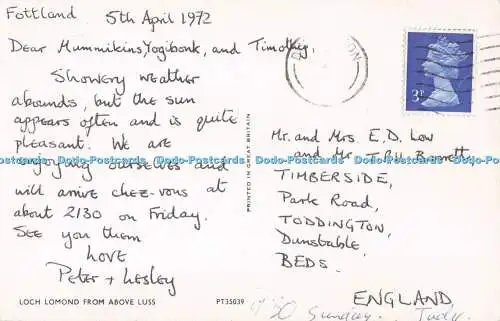 Fottland 5th April 1972
Dear Mummikins, Yogibonk, and Timothy,
Showery weather
abounds, but the sun
appears often and is quite
pleasant. We are
enjoying ourselves and
will arrive chez-vous at
about 2130 on Friday.
See you then
Love
Peter + Lesley
LOCH LOMOND FROM ABOVE LUSS
PT35039
PRINTED IN GREAT BRITAIN
3P
Mr. and Mrs E.D. Low
and Mr. T.P.H. Barrett,
TIMBERSIDE,
Park Road,
TODDINGTON,
Dunstable,
BEDS.
ENGLAND
Sunday
Dodo-Postcards Dodo-Postcards Dodo-Postcards Dodo-Postcards Dodo-Postcards Dodo-Postcards